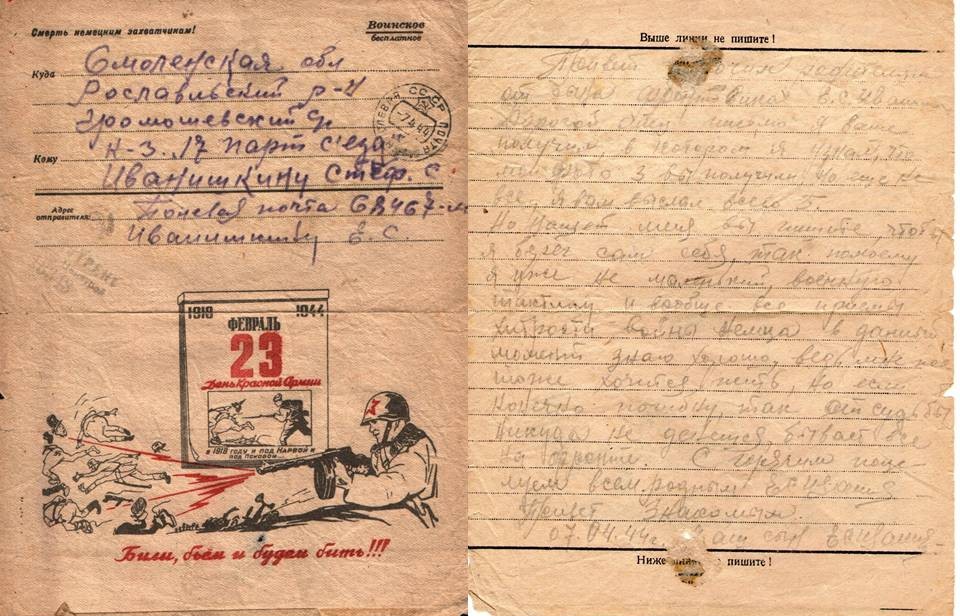 Смерть немецким захватчикам!
Воинское
бесплатное
Куда Смоленская обл
Рославльский р-н
К-з. 17 парт съезда
Кому Иванишкину Стеф. С
Адрес отправителя: Полевая почта
Иванишкину Е. С.
1918 1944
ФЕВРАЛЬ
23
День Красной Армии
В 1918 ГОДУ И ПОД НАРВОЙ И
ПОД ПСКОВОМ...
Били, бьём и будем бить!!!
Выше линии не пишите!
Привет
от сына
Дорогой отец письмо я ваше
получил, в котором я узнал, что
фото 3 вы получили, но еще не
все, я вам выслал всего 5.
Но насчет меня вы пишите, чтоб
я берег сам себя, так
я уже не маленький, военную
тактику и вообще все
хитрости войны немца в данный
момент знаю хорошо, ведь мне
тоже хочется жить, но если
так от судьбы
никуда не денешься, бывает все
С горячим поце-
луем всем родным
Привет знакомым.
07.04.44г. Ваш сын
Ниже пишите!